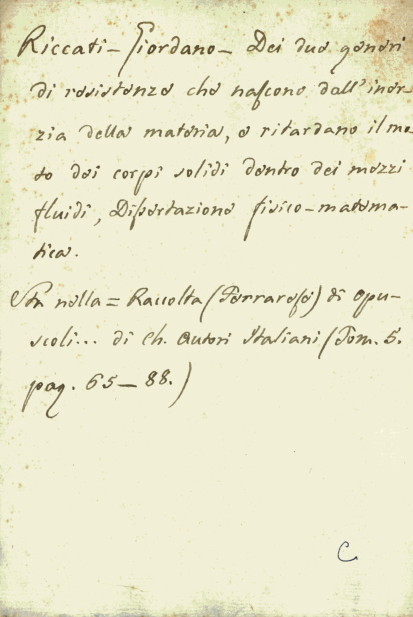 Riccati - Giordano - Dei due generi
di resistenze che nascono dall'iner-
zia della materia, e ritardano il mo-
to dei corpi solidi dentro dei mezzi
fluidi, Dissertazione fisico-matema-
tica.
Sta nella = Raccolta (Ferrarese) di opu-
scoli... di Ch. Autori Italiani (Tom. 5.
pag. 65-88.)
C